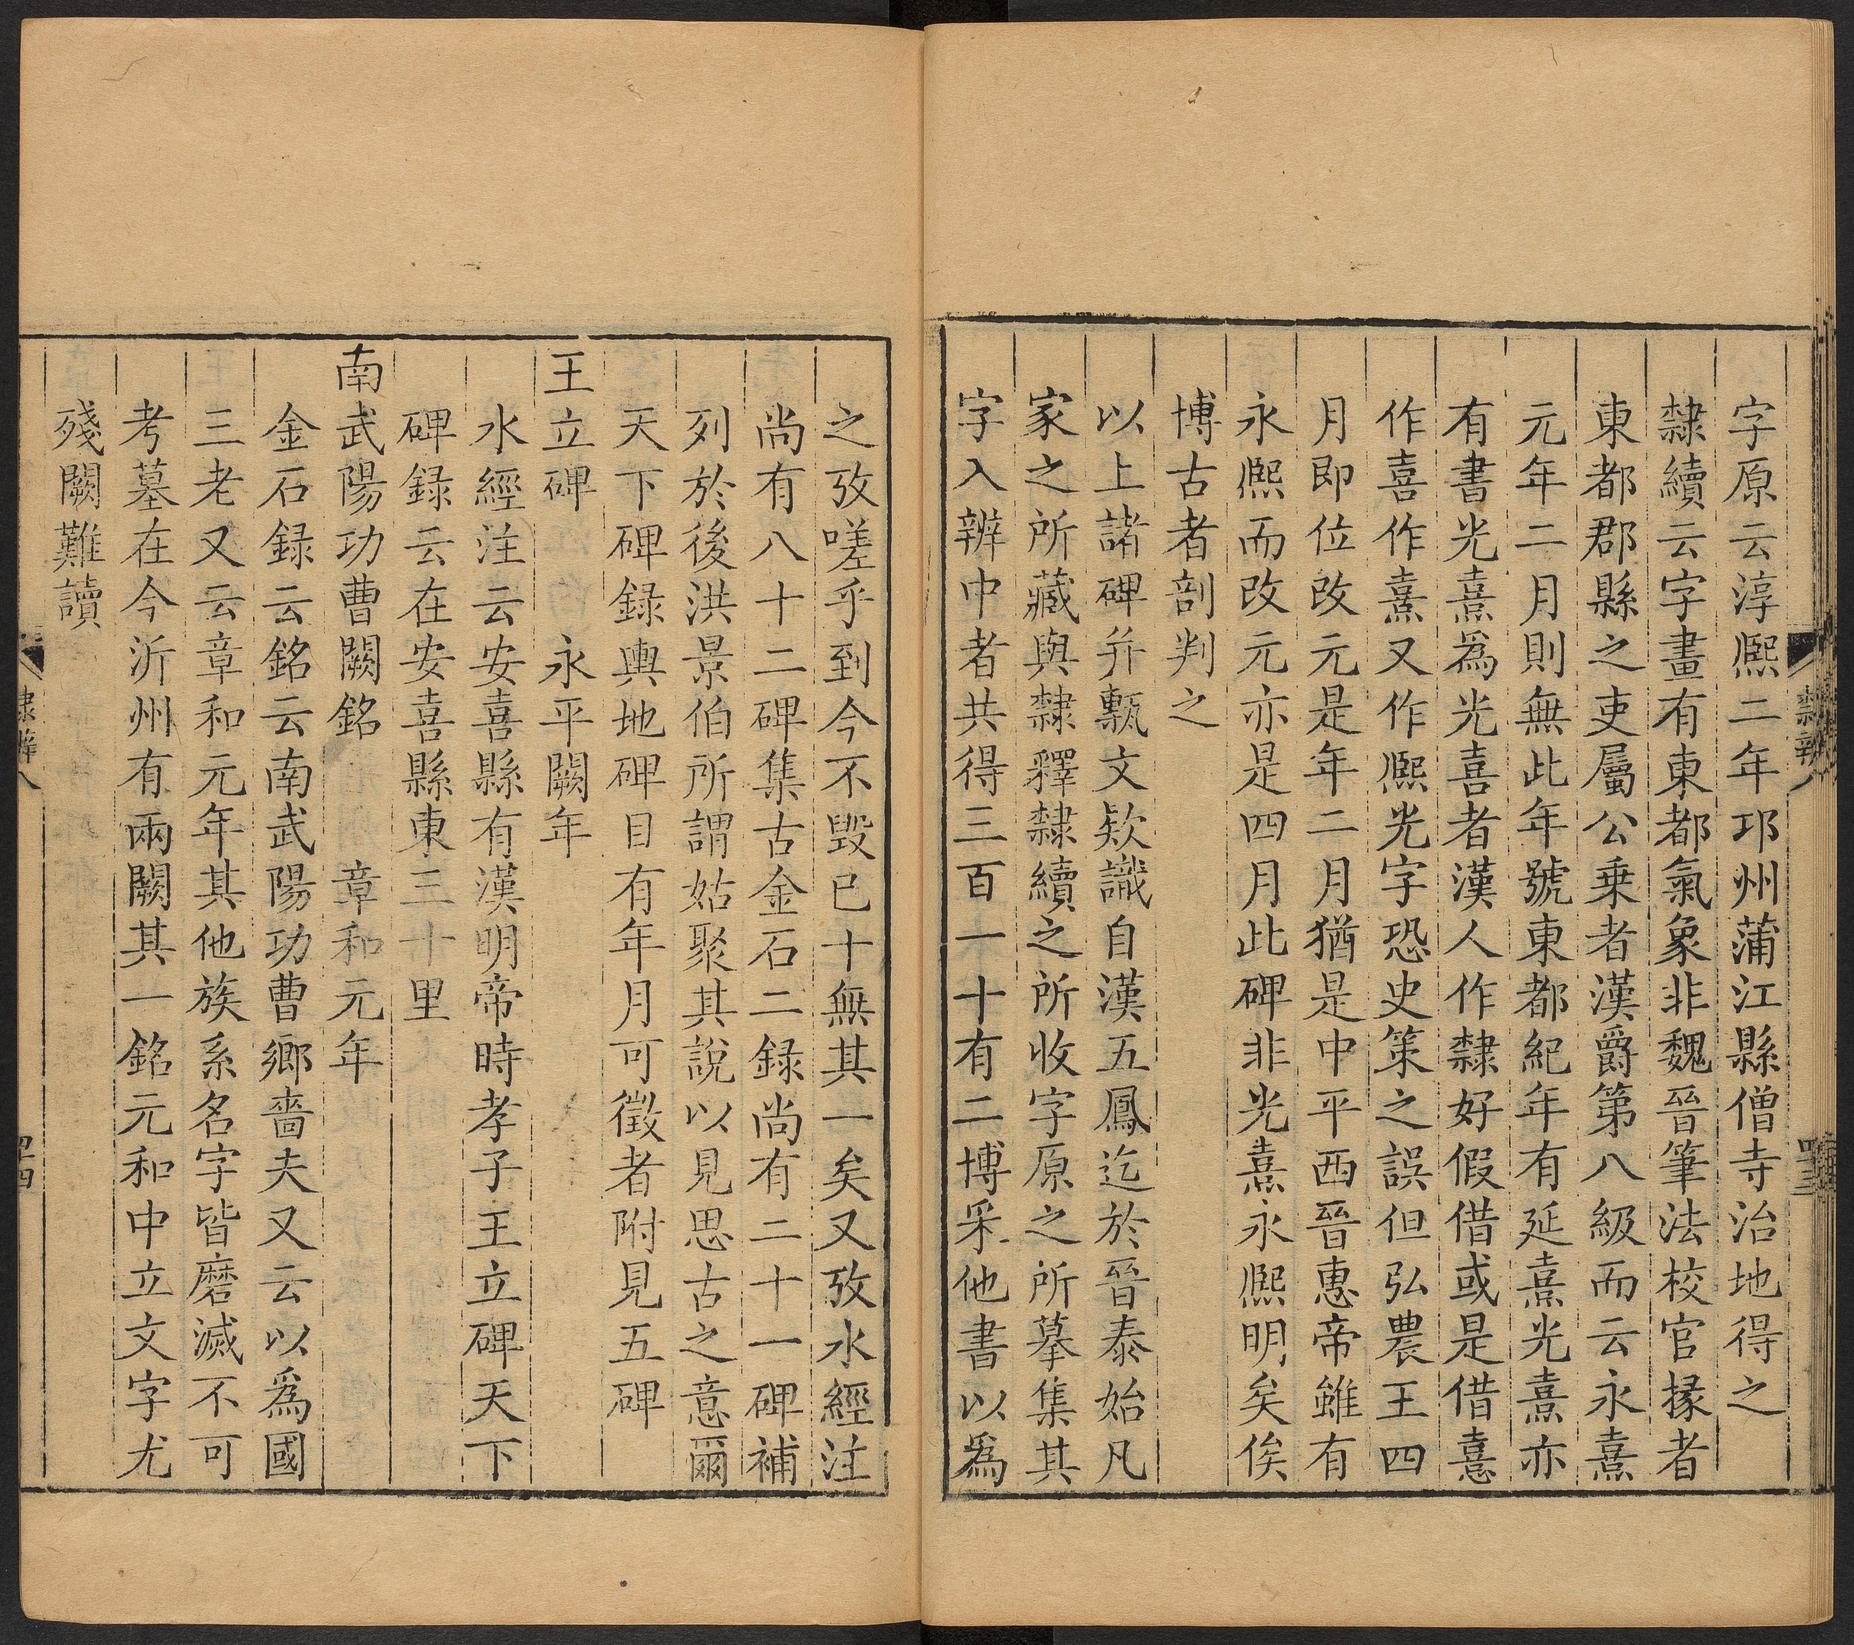 字原云淳熈二年邛州蒲江縣僧寺治地得之
隸續云字畫有東都氣象非魏晉筆法校官掾者
東都郡縣之吏屬公乗者漢爵第八級而云永熹
元年二月則無此年號東都紀年有延熹光熹亦
有書光熹爲光喜者漢人作隸好假借或是借憙
作喜作熹又作熈光字恐史策之誤但弘農王四
月即位改元是年二月猶是中平西晉惠帝雖有
永熈而改元亦是四月此碑非光熹永熈明矣俟
博古者剖判之
以上諸碑并甎文欵識自漢五鳳迄於晉泰始凡
家之所藏與隸釋隸續之所收字原之所摹集其
字入辨中者共得三百一十有二博采他書以爲
隸辨八
四三
之攷嗟乎到今不毁已十無其一矣又攷水經注
尚有八十二碑集古金石二録尚有二十一碑補
列於後洪景伯所謂姑聚其說以見思古之意爾
天下碑録輿地碑目有年月可徵者附見五碑
王立碑 永平闕年
水經注云安喜縣有漢明帝時孝子王立碑天下
碑録云在安喜縣東三十里
南武陽功曹闕銘 章和元年
金石録云銘云南武陽功曹鄉嗇夫又云以爲國
三老又云章和元年其他族系名字皆磨滅不可
考墓在今沂州有兩闕其一銘元和中立文字尤
殘闕難讀
隸辨八
四四